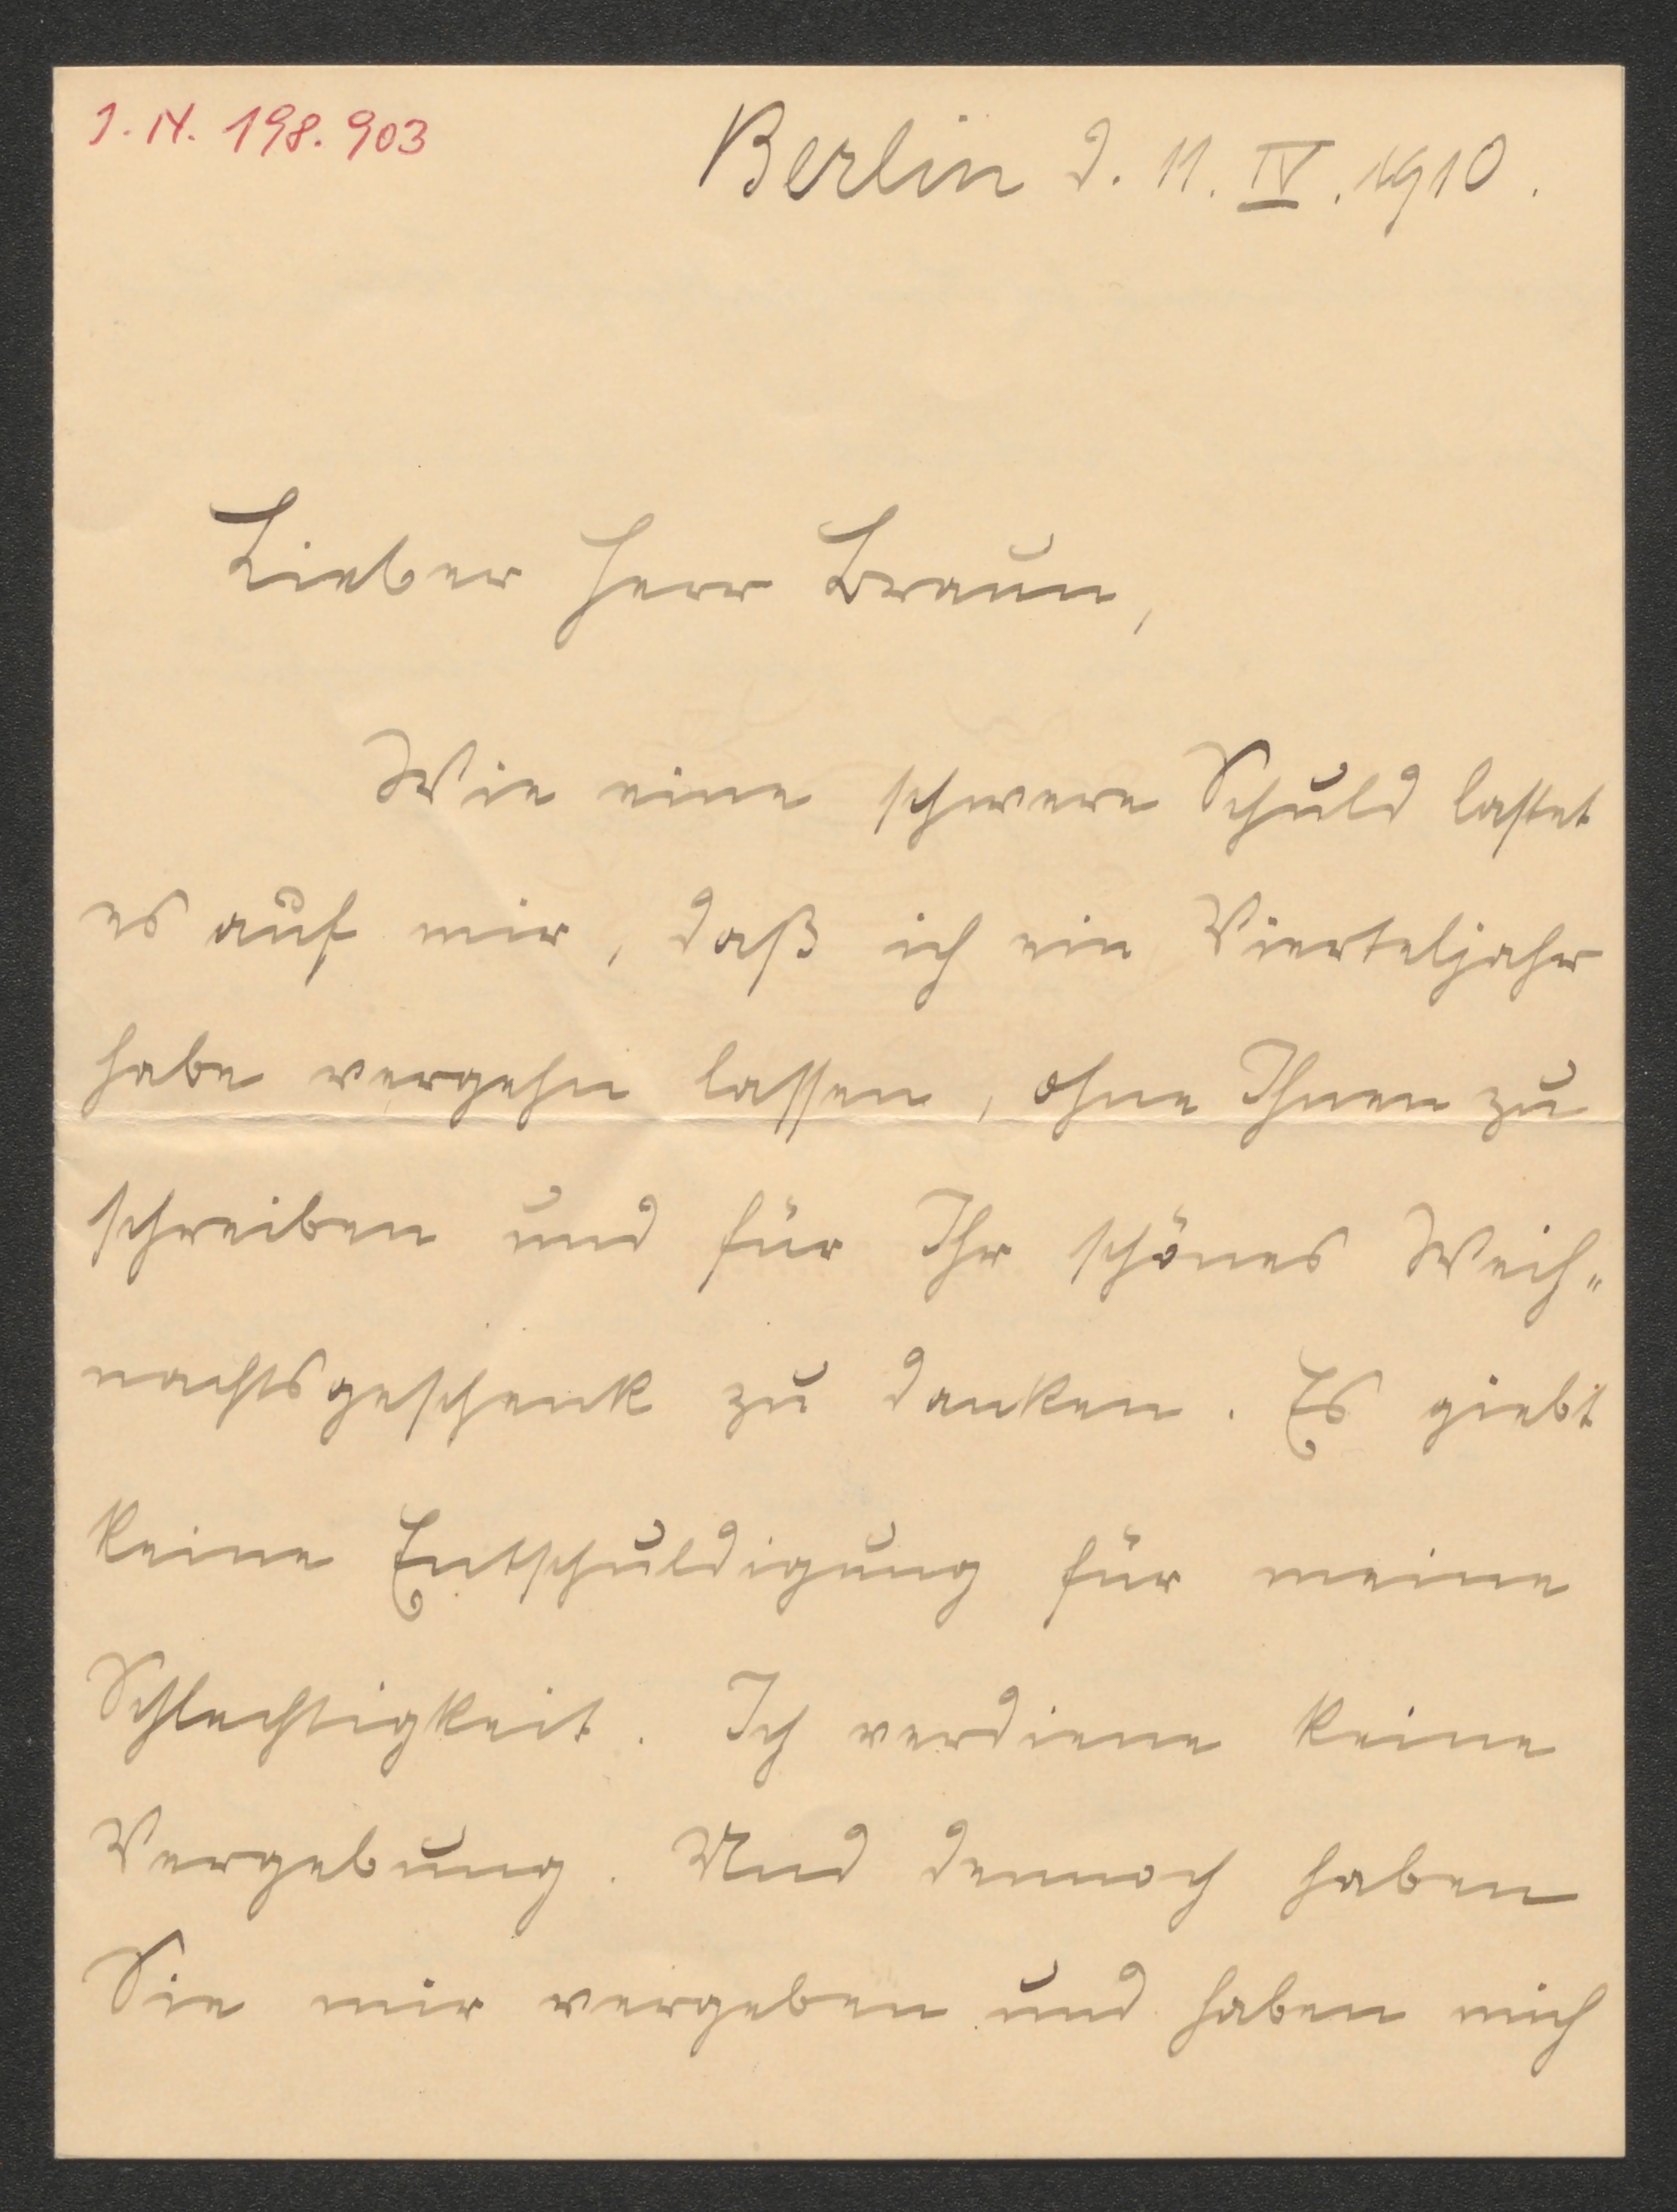 I. N. 198.903
Berlin d. 11. IV. 1910.
Lieber Herr Braun,
Wie eine schwere Schuld lastet
es auf mir, daß ich ein Vierteljahr
habe vergehn lassen, ohne Ihnen zu
schreiben und für Ihr schönes Weih-
nachtsgeschenk zu danken. Es giebt
keine Entschuldigung für meine
Schlechtigkeit. Ich verdiene keine
Vergebung. Und dennoch haben
Sie mir vergeben und haben mich